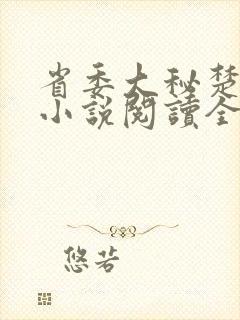 省委大秘楚
小說閱讀全
悠若